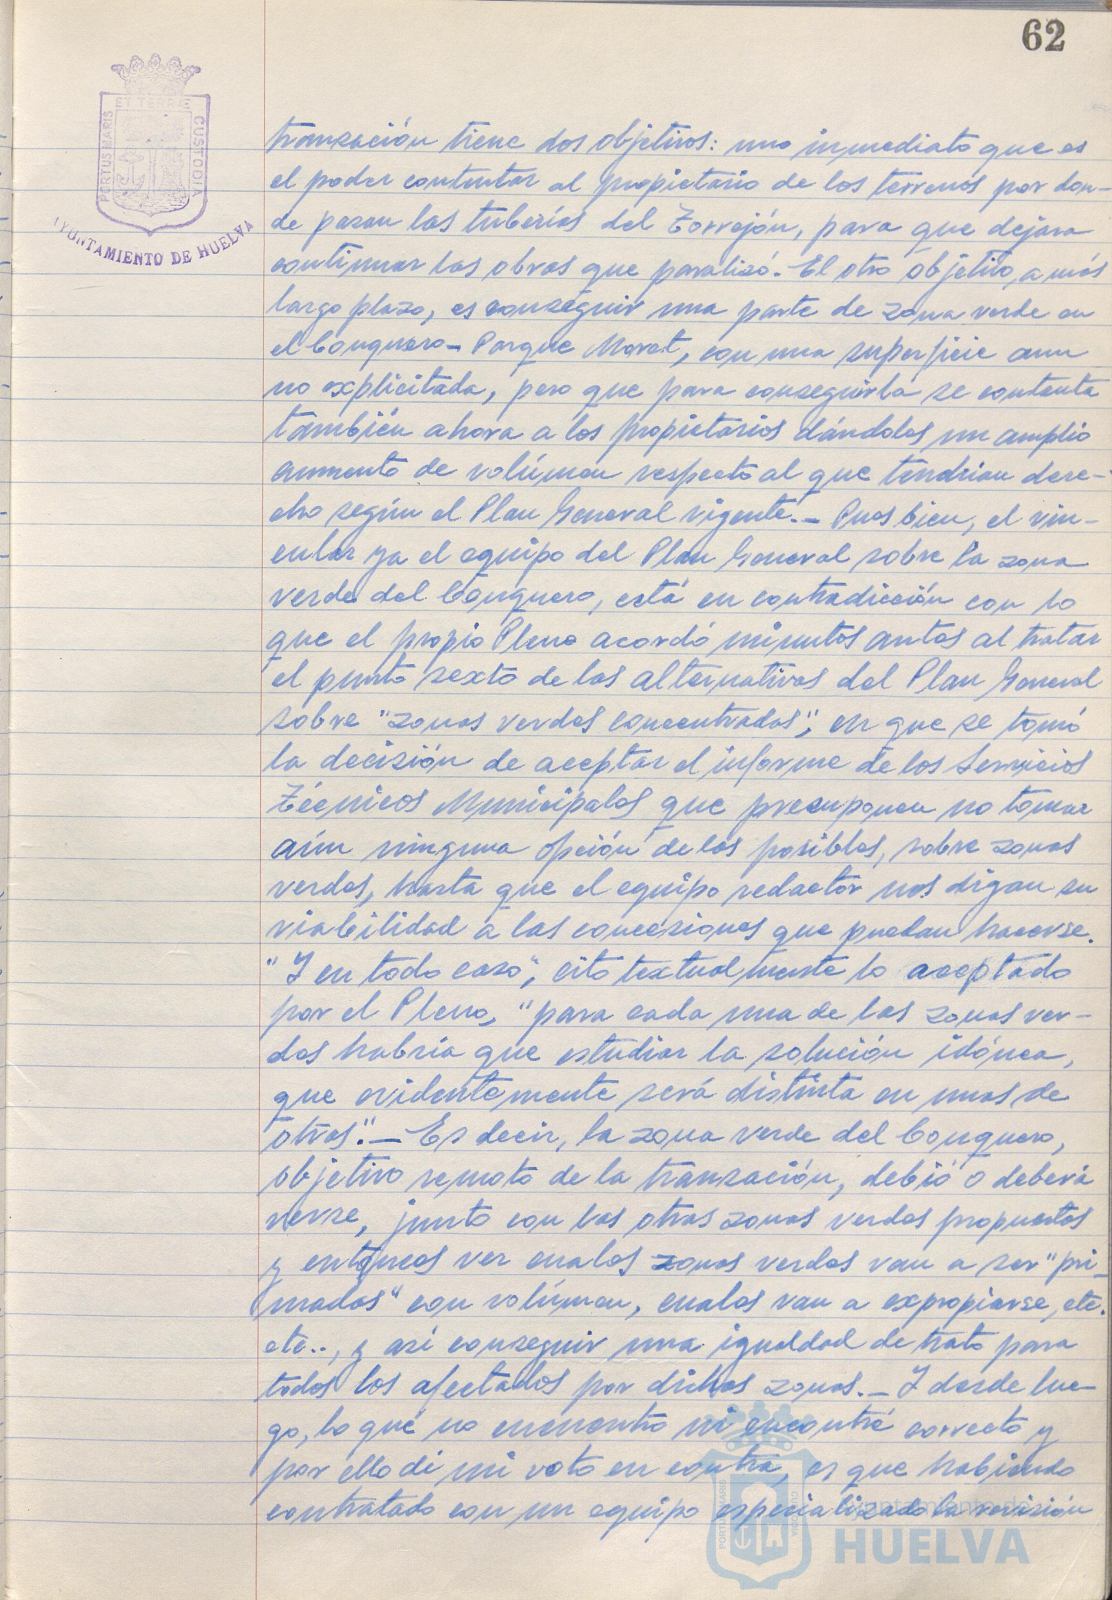 62
PORTUS MARIS ET TERRAE CUSTODIA
AYUNTAMIENTO DE HUELVA
tranzación tiene dos objetivos: uno inmediato que es
el poder contentar al propietario de los terrenos por don-
de pasan las tuberías del Torrejón, para que dejara
continuar las obras que paralizó.- El otro objetivo, a más
largo plazo, es conseguir una parte de zona verde en
el Conquero- Parque Moret, con una superficie aun
no explicitada, pero que para conseguirla se contenta
también ahora a los propietarios dándoles un amplio
aumento de volúmen respecto al que tendrían dere-
cho según el Plan General vigente.- Pues bien, el vin-
cular ya el equipo del Plan General sobre la zona
verde del Conquero, está en contradicción con lo
que el propio Pleno acordó minutos antes al tratar
el punto sexto de las alternativas del Plan General
sobre "zonas verdes concentradas", en que se tomó
la decisión de aceptar el informe de los Servicios
Técnicos Municipales que presuponen no tomar
aún ninguna opción de las posibles, sobre zonas
verdes, hasta que el equipo redactor nos digan su
viabilidad a las concesiones que puedan hacerse.
"Y en todo caso", cito textualmente lo aceptado
por el Pleno, "para cada una de las zonas ver-
des habría que estudiar la solución idónea,
que evidentemente será distinta en unas de
otras".- Es decir, la zona verde del Conquero,
objetivo remoto de la tranzación, debió o deberá
verse, junto con las otras zonas verdes propuestas
y entonces ver cuales zonas verdes van a ser "pri-
madas" con volúmen, cuales van a expropiarse, etc.
etc.., y así conseguir una igualdad de trato para
todos los afectados por dichas zonas.- Y desde lue-
go, lo qué no encuentro ni encontré correcto y
por ello di mi voto en contra, es que habiendo
contratado con un equipo especializado la revisión
Ayuntamiento de
HUELVA